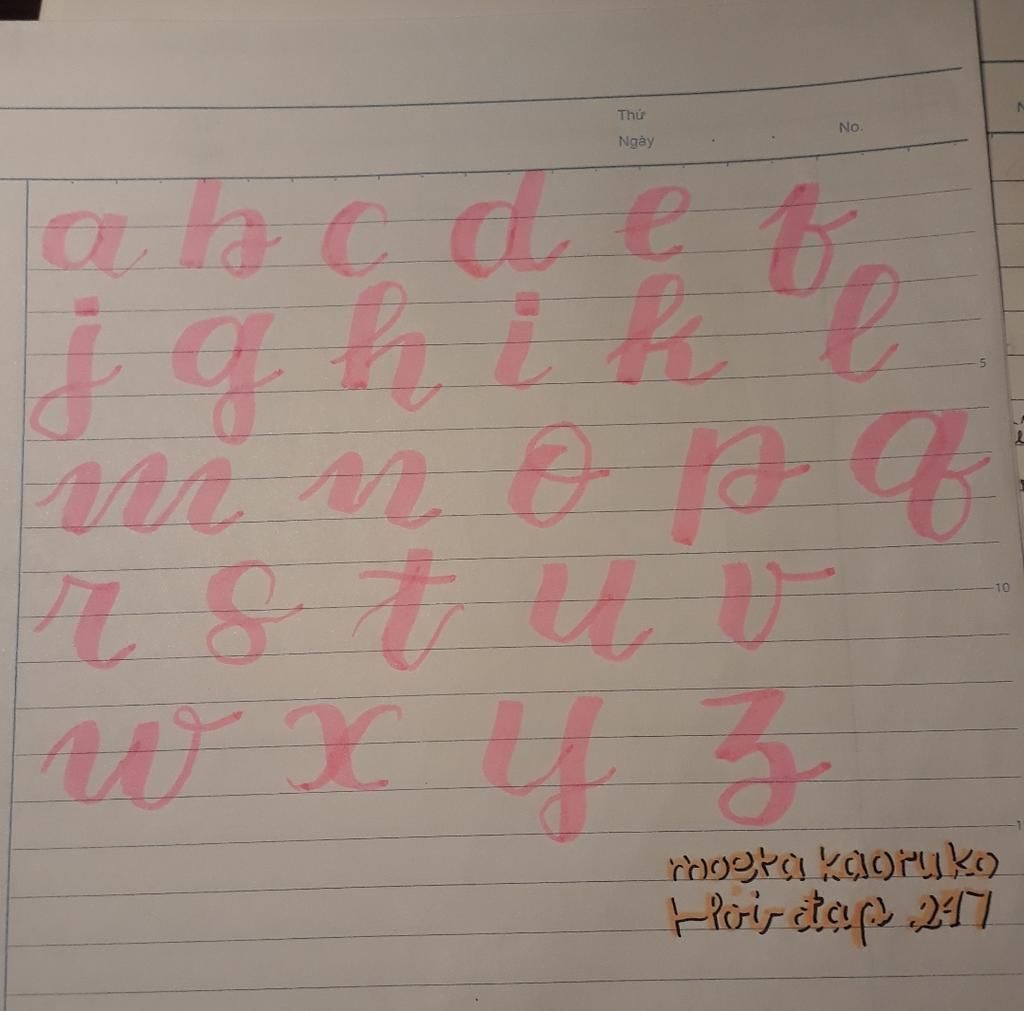 Thứ
Ngày
No.
a b c d e f
j g h i k l
5
m n o p q
r s t u v
10
w x y z
moera kaoruko
Hoidap 247